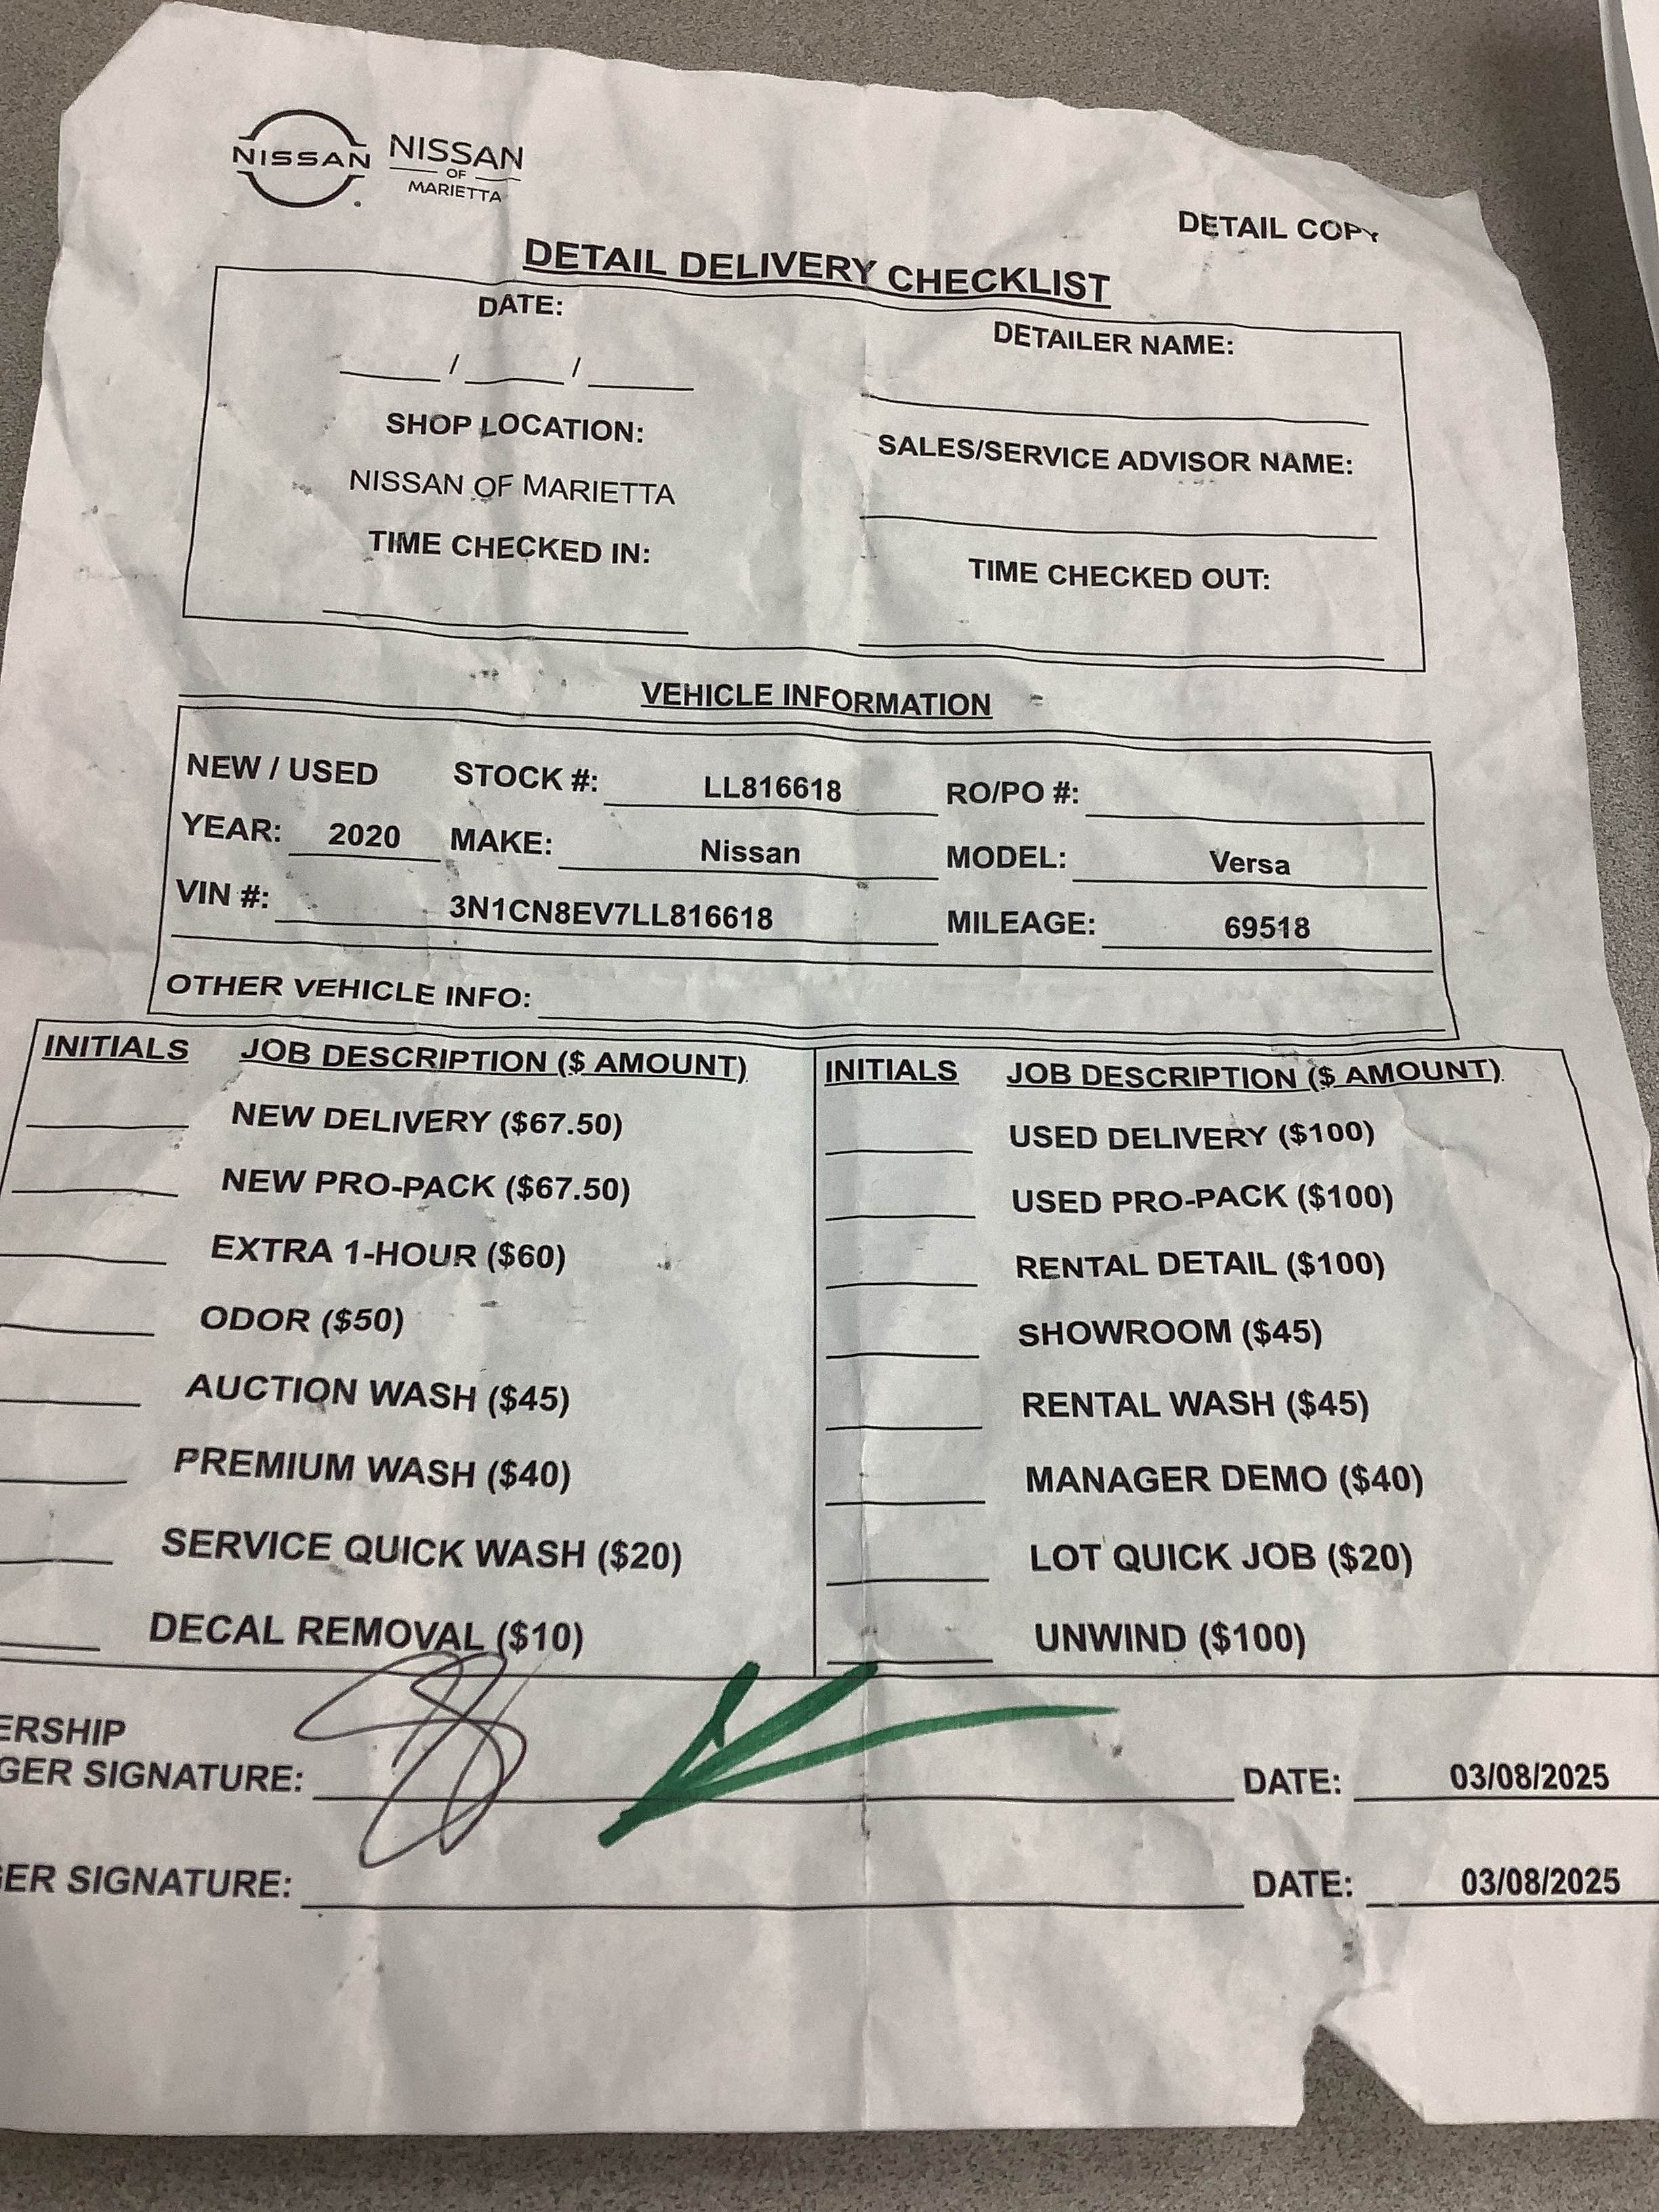 NISSAN NISSAN
OF
MARIETTA
DETAIL COPY
DETAIL DELIVERY CHECKLIST
DATE:
/ /
DETAILER NAME:
SHOP LOCATION:
NISSAN OF MARIETTA
SALES/SERVICE ADVISOR NAME:
TIME CHECKED IN:
TIME CHECKED OUT:
VEHICLE INFORMATION
NEW / USED STOCK #: LL816618 RO/PO #:
YEAR: 2020 MAKE: Nissan MODEL: Versa
VIN #: 3N1CN8EV7LL816618 MILEAGE: 69518
OTHER VEHICLE INFO:
INITIALS JOB DESCRIPTION ($ AMOUNT)
NEW DELIVERY ($67.50)
NEW PRO-PACK ($67.50)
EXTRA 1-HOUR ($60)
ODOR ($50)
AUCTION WASH ($45)
PREMIUM WASH ($40)
SERVICE QUICK WASH ($20)
DECAL REMOVAL ($10)
INITIALS JOB DESCRIPTION ($ AMOUNT)
USED DELIVERY ($100)
USED PRO-PACK ($100)
RENTAL DETAIL ($100)
SHOWROOM ($45)
RENTAL WASH ($45)
MANAGER DEMO ($40)
LOT QUICK JOB ($20)
UNWIND ($100)
ERSHIP
GER SIGNATURE: DATE: 03/08/2025
GER SIGNATURE: DATE: 03/08/2025